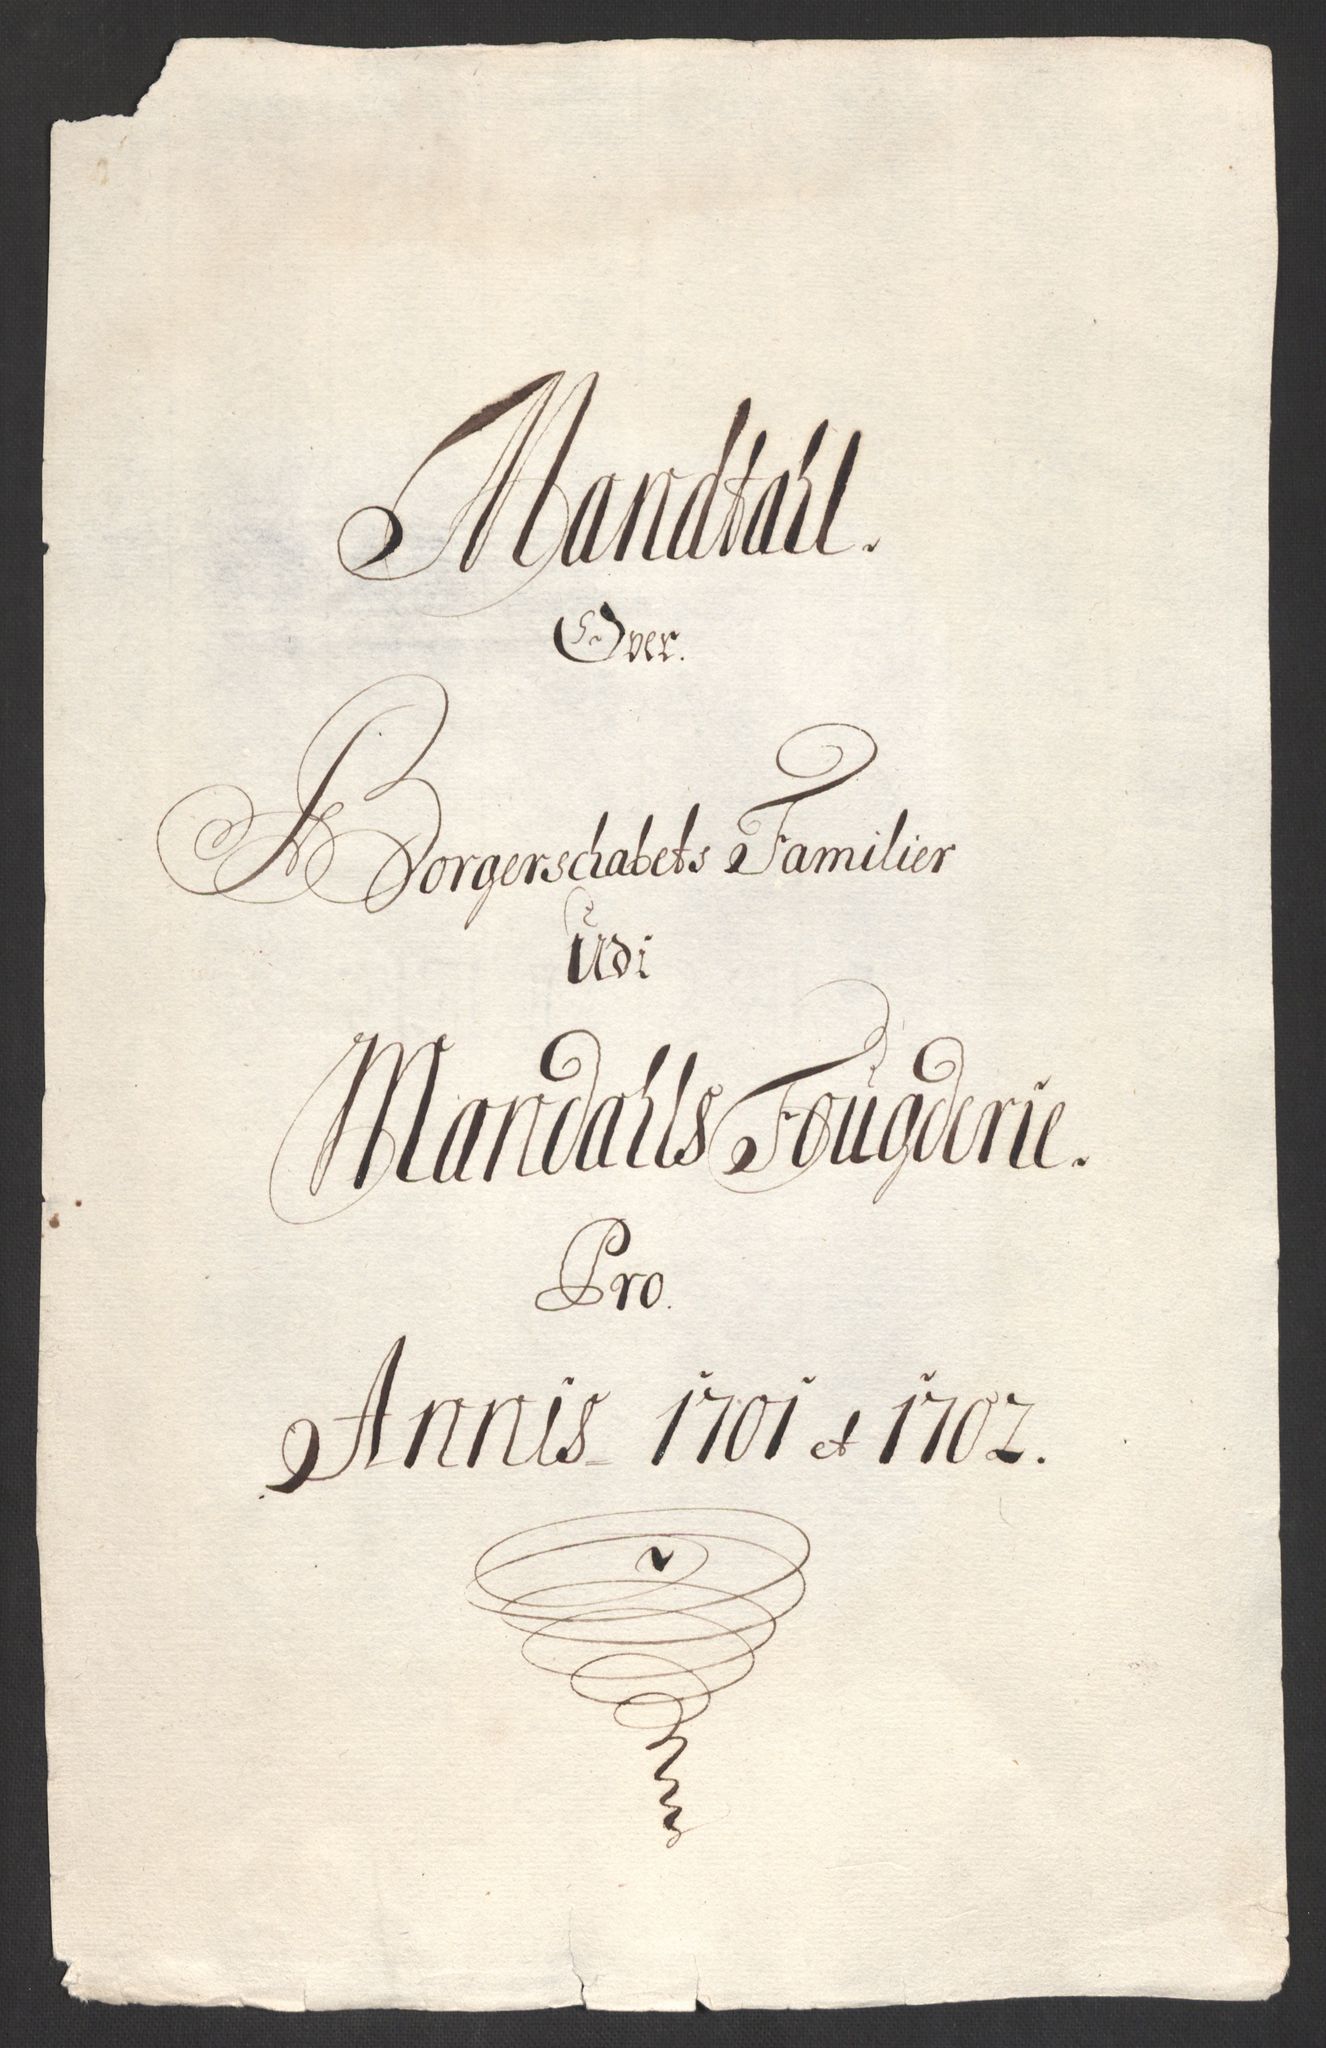 Mandtahl.
Over.
Borgerschabets Familier
Udi
Mandahls Fougderie.
Pro.
Annis 1701 et 1702.